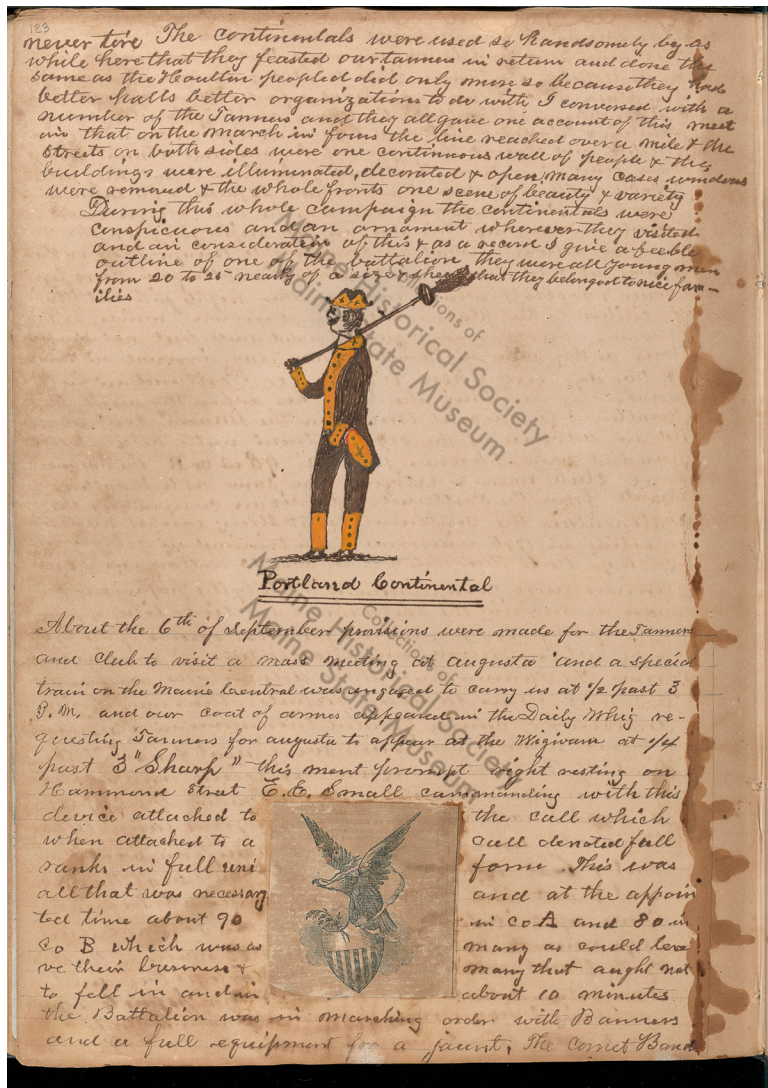 123
never tire The Continentals were used so handsomely by us
while here that they feasted our tanners in return and done the
same as the Houlton peopled did only more so because they had
better halls better organizations to do with I conversed with a
number of the Tanners and they all gave one account of this meet
in that on the march in fours the line reached over a mile & the
streets on both sides were one continuous wall of people & the
buildings were illuminated, decorated & open, many cases windows
were removed & the whole fronts one scene of beauty & variety
During this whole campaign the continentals were
conspicuous and an ornament wherever they visited
and in consideration of this & as a record I give a feeble
outline of one of the battalion they were all young men
from 20 to 25 nearly of a size & that they belonged to nice fam-
ilies
Portland Continental
About the 6th of September provisions were made for the Tanners
and Club to visit a mass meeting at augusta and a special
train on the Maine Central was engaged to carry us at 1/2 past 3
P.M. and our coat of armes appeared in the Daily Whig re-
questing Tanners for augusta to appear at the Wigwam at 1/4
past 3 "Sharp" this ment prompt right resting on
Hammond Street E.E. Small commanding with this
device attached to the call which
when attached to a call denoted full
ranks in full uni form This was
all that was necessary and at the appoin
ted time about 90 in Co A and 80 in
Co B which was as many as could lea
ve their business & many that aught not
to fell in and in about 10 minutes
the Battalion was in marching order with Banners
and a full equipment for a jaunt, The Cornet Band
Collections of
Maine Historical Society
Maine State Museum
Collections of
Maine Historical Society
Maine State Museum